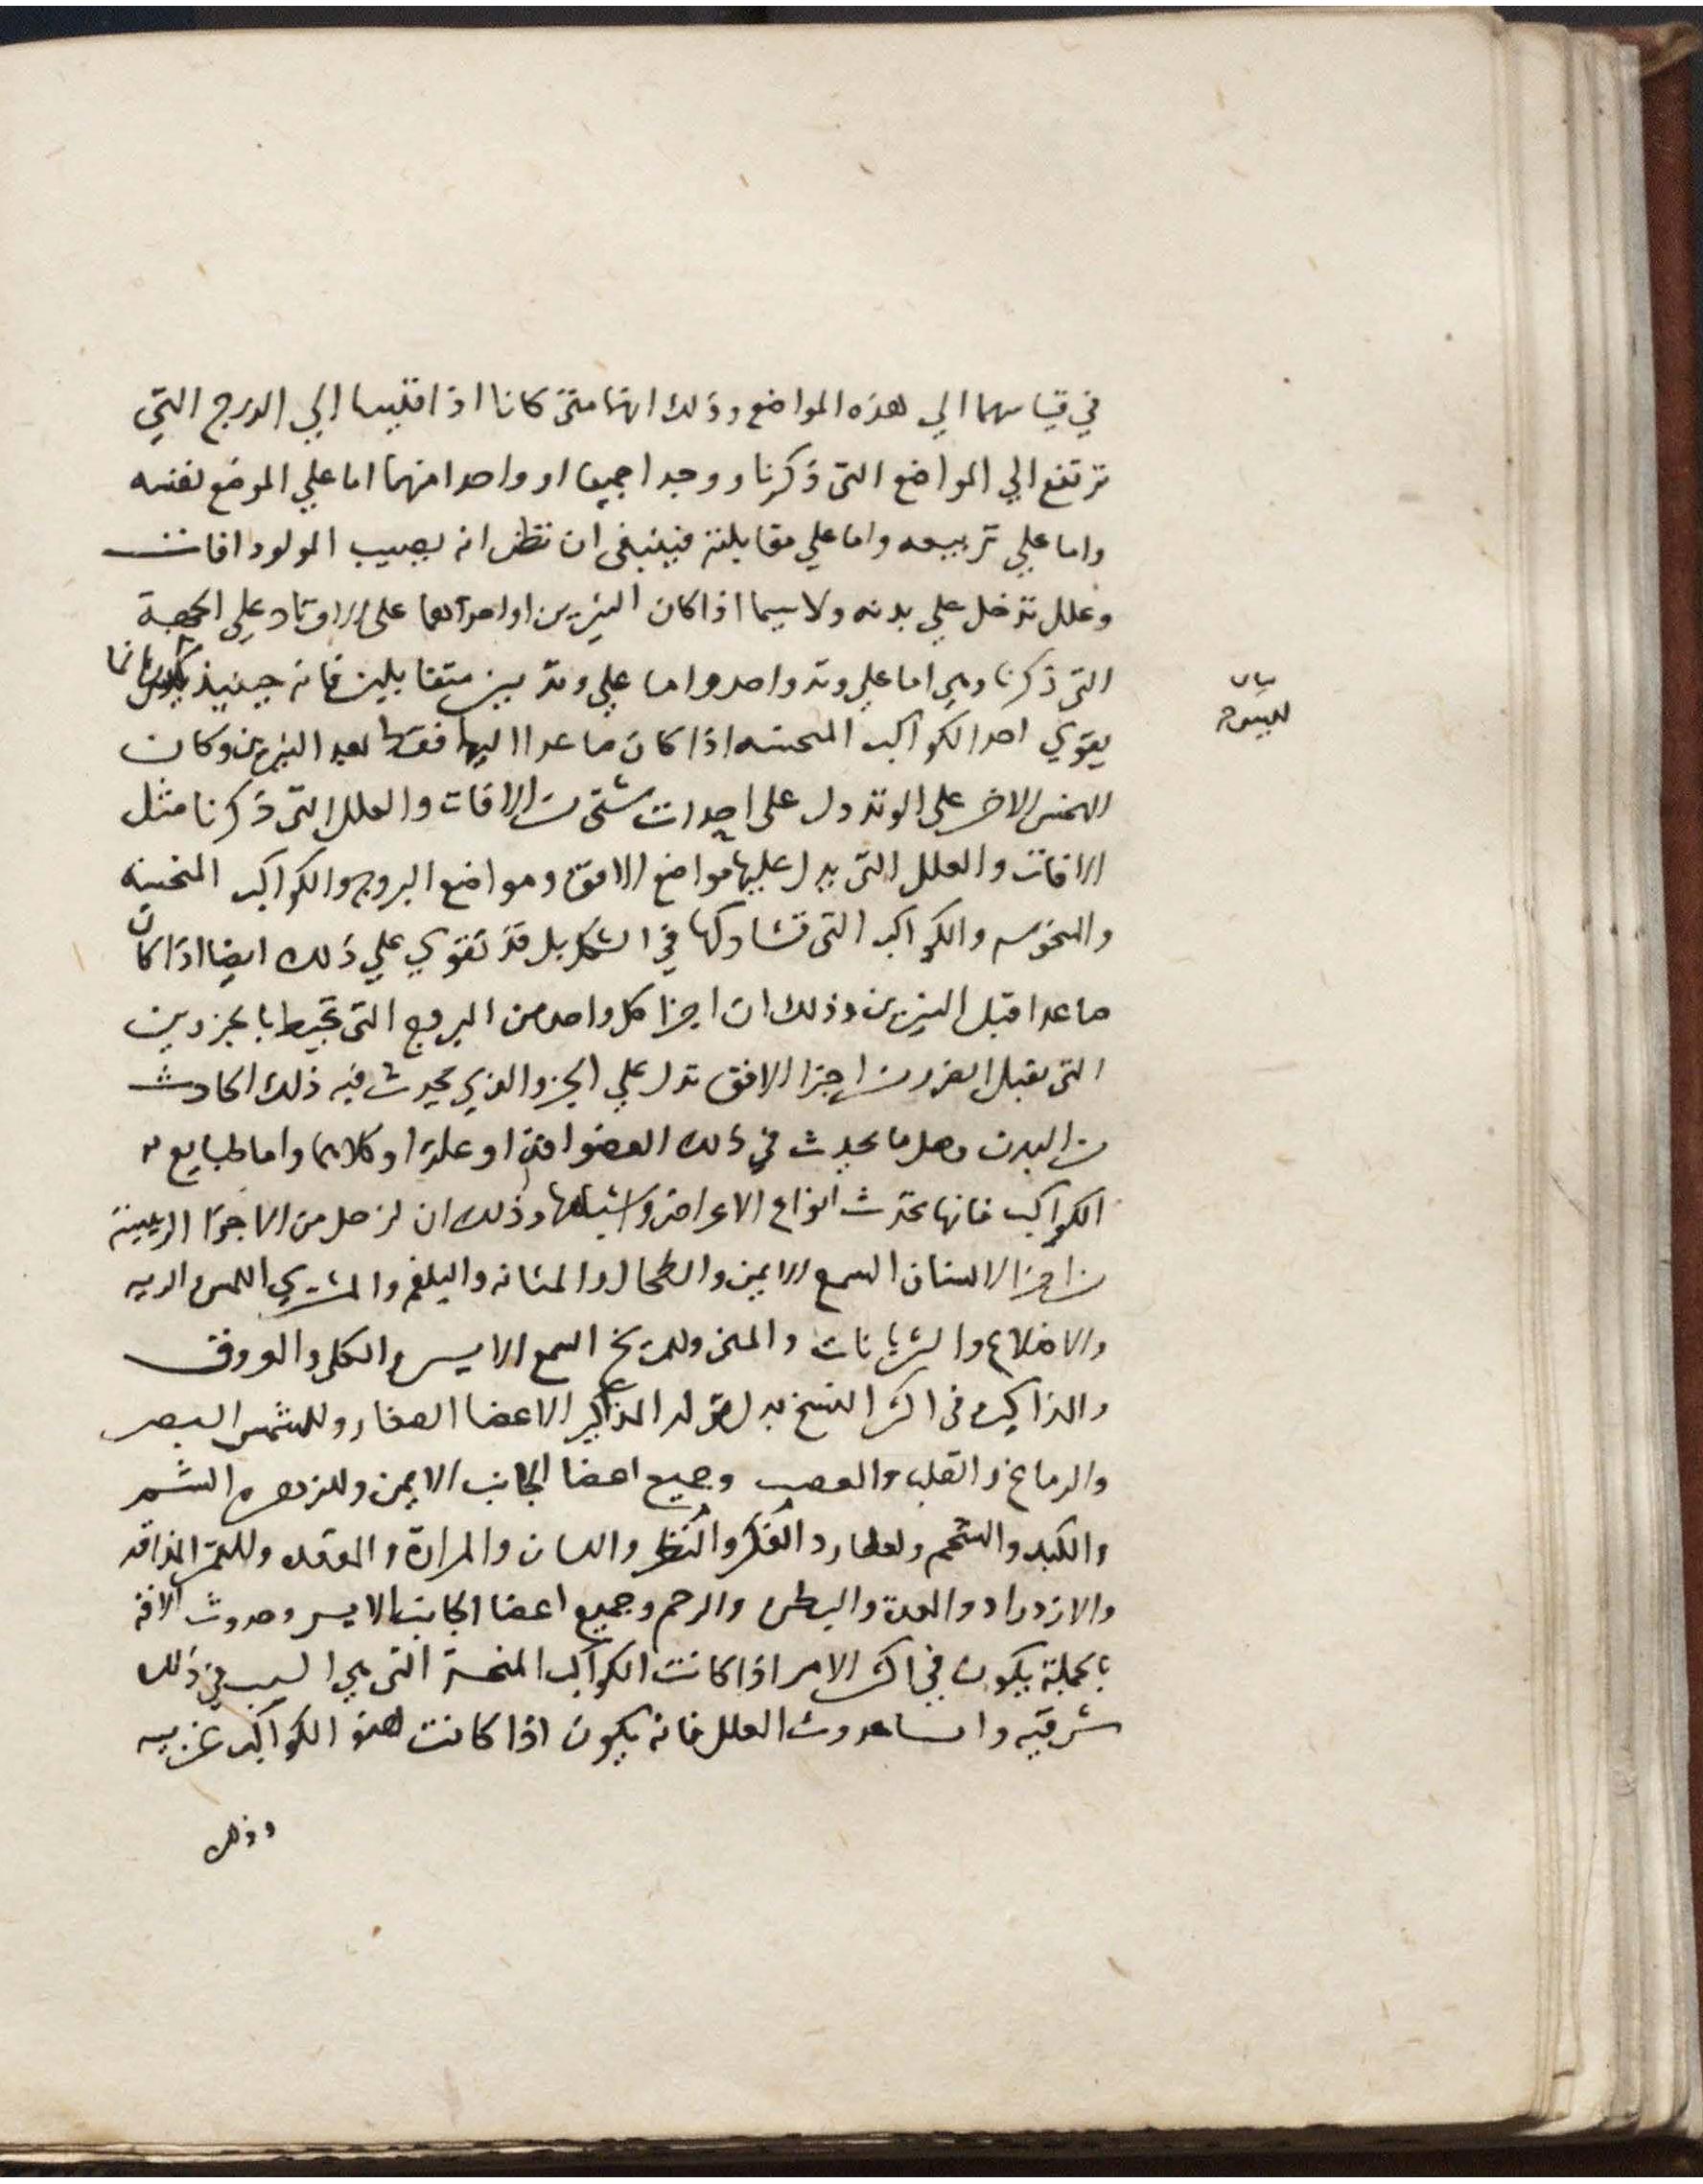 في قياسهما الي هذه المواضع وذلك انهما متى كانا اذا قيسا الي الدرج التي
ترتفع الي المواضع التى ذكرنا ووجدا جميعا او واحدا منهما اما علي الموضع نفسه
واما علي تربيعه واما علي مقابلته فينبغى ان تظن انه يصيب المولود افات
وعلل تدخل علي بدنه ولا سيما اذا كان النيرين او احداهما على الاوتاد علي الجهة
التى ذكرنا وهي اما علي وتد واحد واما علي وتدين متقابلين فانه حينيذ
يقوي احد الكواكب المنحسه اذا كان صاعدا اليها فقط بعد النيرين وكان
النحس الاخر على الوتد دل على احداث شتى من الافات والعلل التى ذكرنا مثل
الافات والعلل التى يدل عليها مواضع الافق ومواضع البروج والكواكب المنحسه
والنحوسه والكواكب التى تشاركها في الشكل بل قد تقوي علي ذلك ايضا اذا كان
صاعدا قبل النيرين وذلك ان اجزا كل واحد من البروج التى تحيط بالجزوين
التى يقبل الضرر من اجزا الافق تدل علي الجزو الذي يحدث فيه ذلك الحادث
من البدن وهل ما يحدث في ذلك العضو افة او علة او كلاهما واما طبايع
الكواكب فانها تحدث انواع الاعراض واشباهها وذلك ان لزحل من الاجزا الرييسة
من اجزا الانسان السمع الايمن والطحال والمثانه والبلغم والمشتري اللمس والريه
والاضلاع والشريانات والمنى وللمريخ السمع الايسر والكلى والعروق
والمذاكير فى اكثر النسخ بدل قوله المذاكير الاعضا الصغار وللشمس البصر
والدماغ والقلب والعصب وجميع اعضا الجانب الايمن وللزهره الشم
والكبد والشحم ولعطارد الفكر والنظر واللسان والمرارة والمقعده وللقمر المذاقه
والازدراد والمعدة والبطن والرحم وجميع اعضا الجانب الايسر وحدوث الافه
بالجملة يكون في اكثر الامر اذا كانت الكواكب المنحسة التى هي السبب في ذلك
شرقيه واما حدوث العلل فانه يكون اذا كانت هذه الكواكب غربيه
وذلك